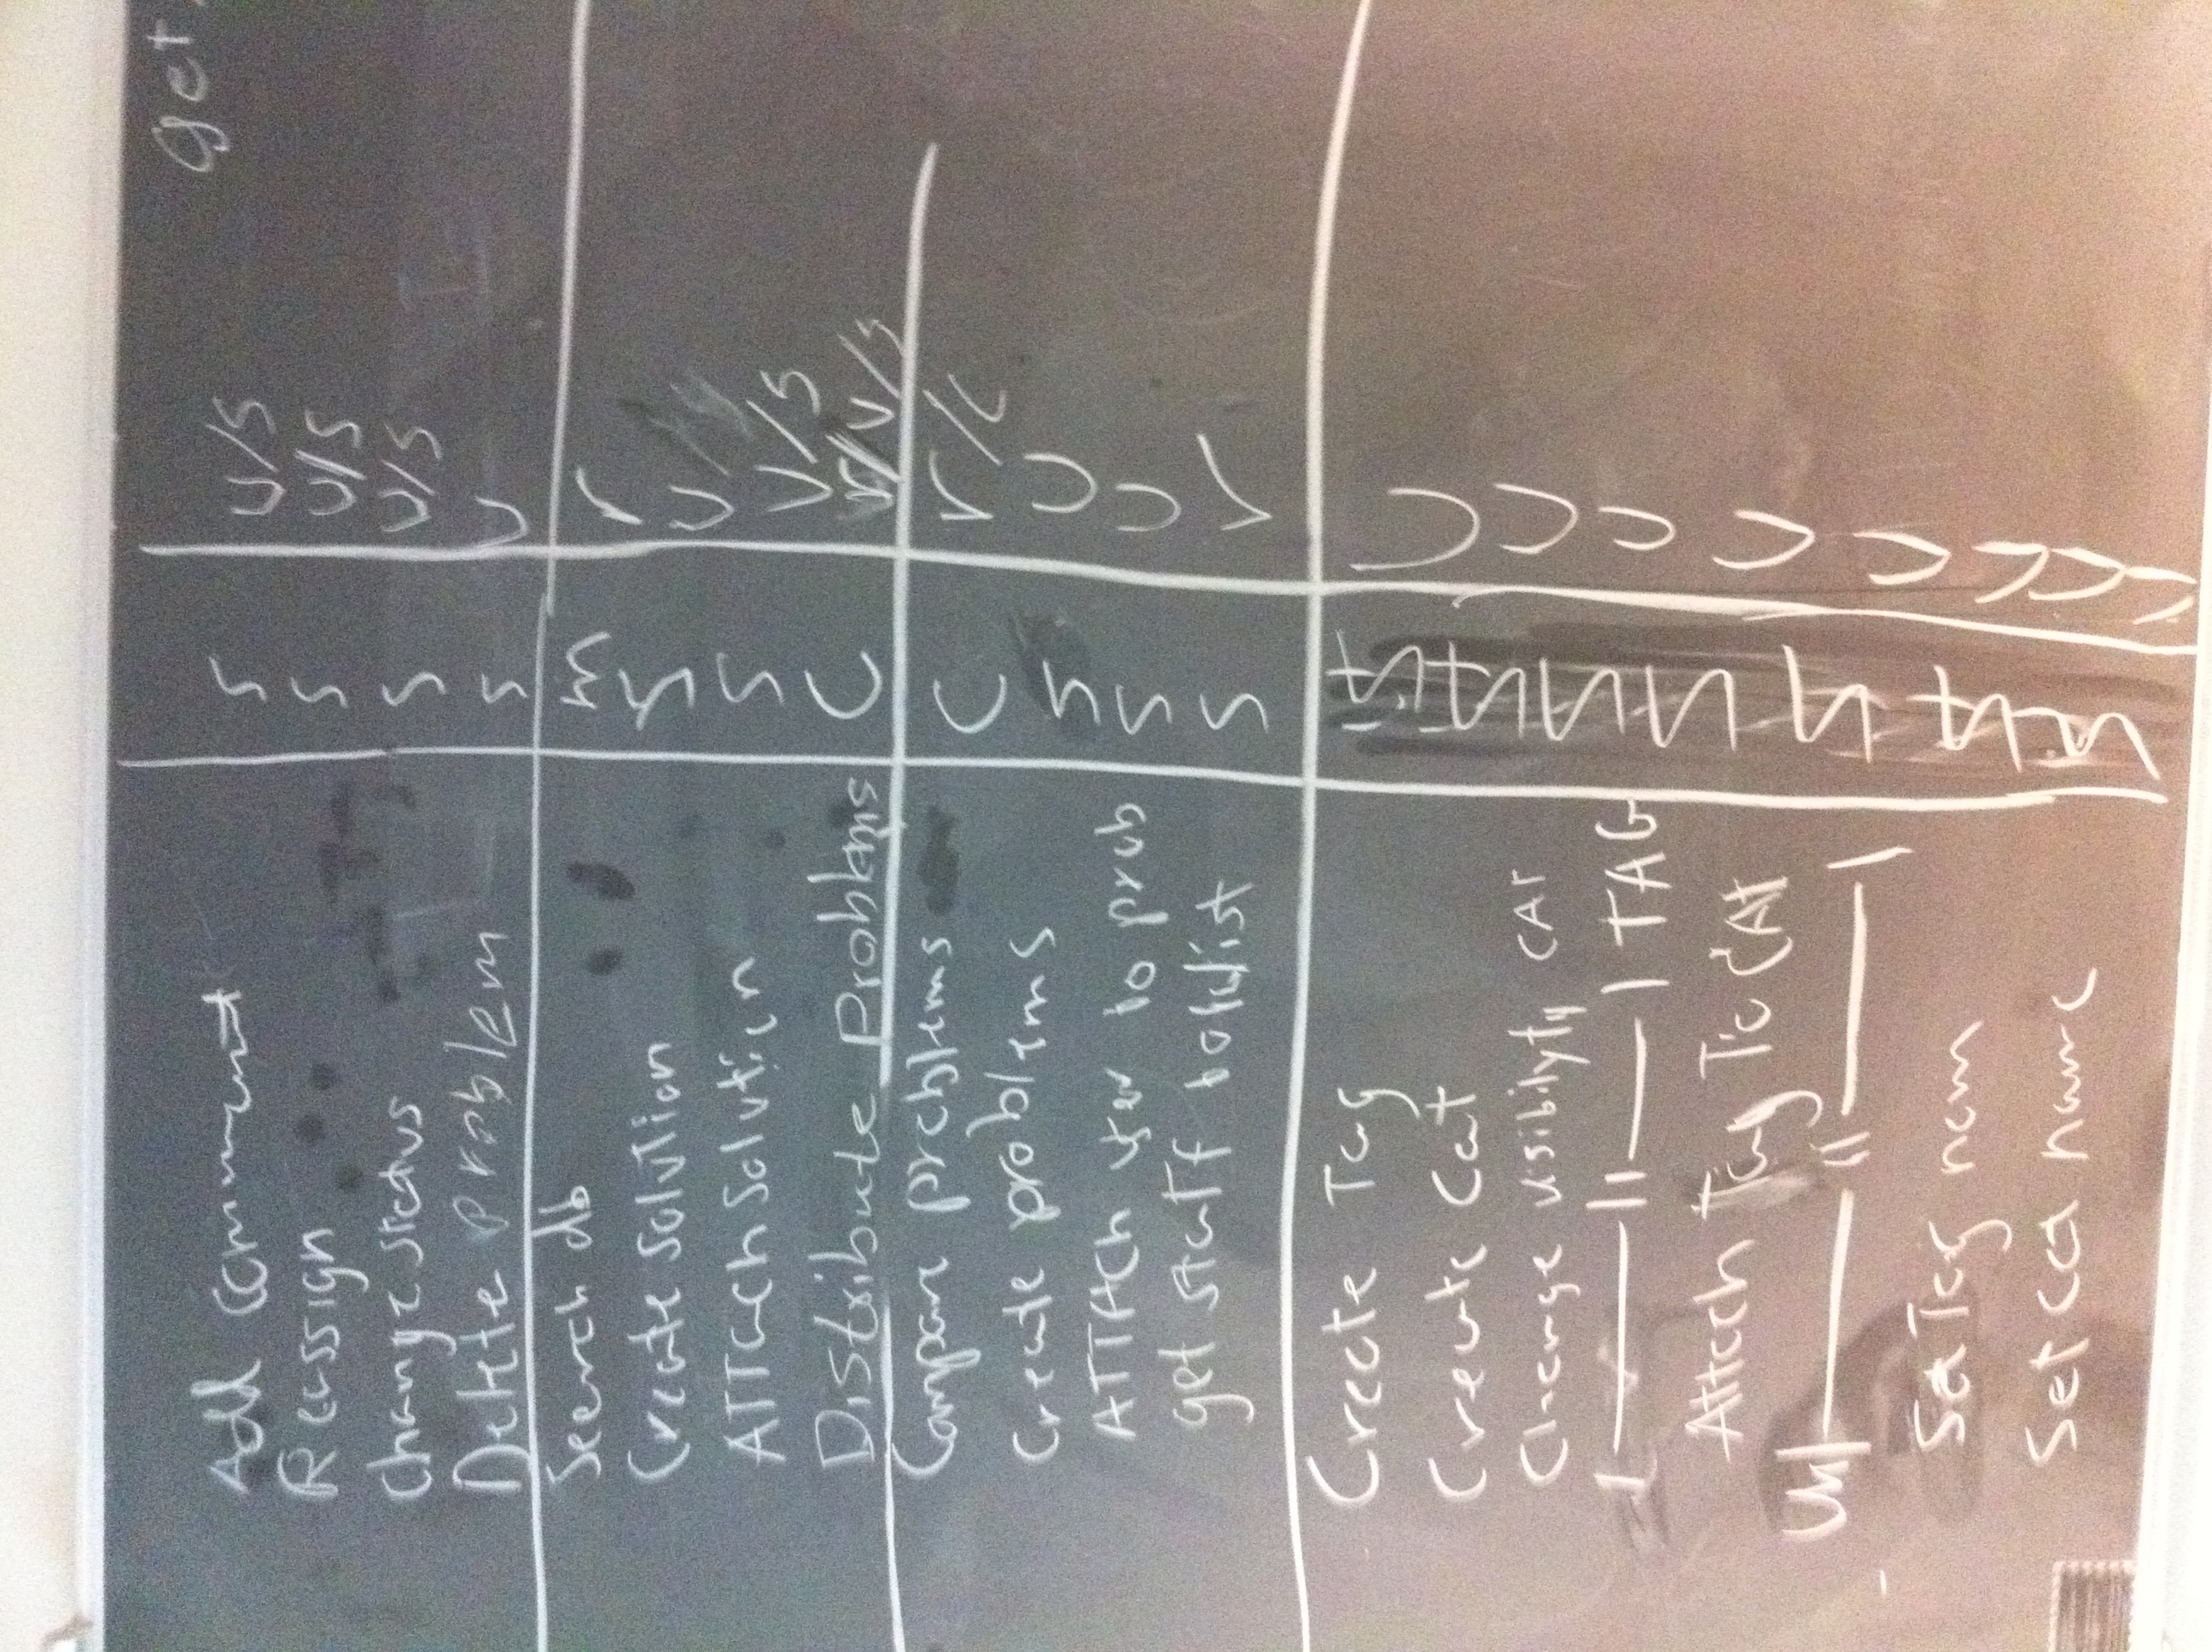 get
Add comment S U/S
Reassign S U/S
Change status S U/S
Delete problem S U
Search db m r
Create solution S U/
ATTach solution S U/S
Distribute problems C r/U/S
Compare problems C r/c
Create problems S U
ATTACh user to prob S U
get staff list S r
Create Tag U
Create Cat U
Change visibilyty CAT U
|——||——| TAG U
Attach Tag To CAt
Un|——||——|
Set Tag nam
Set cat name